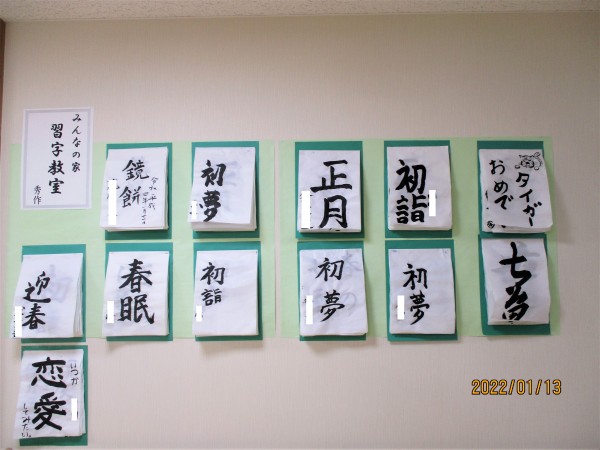 みんなの家
習字教室
秀作
鏡餅
初夢
正月
初詣
タイガー
おめで
迎春
春眠
初詣
初夢
初夢
七
いつか
恋愛
してみたい。
2022/01/13